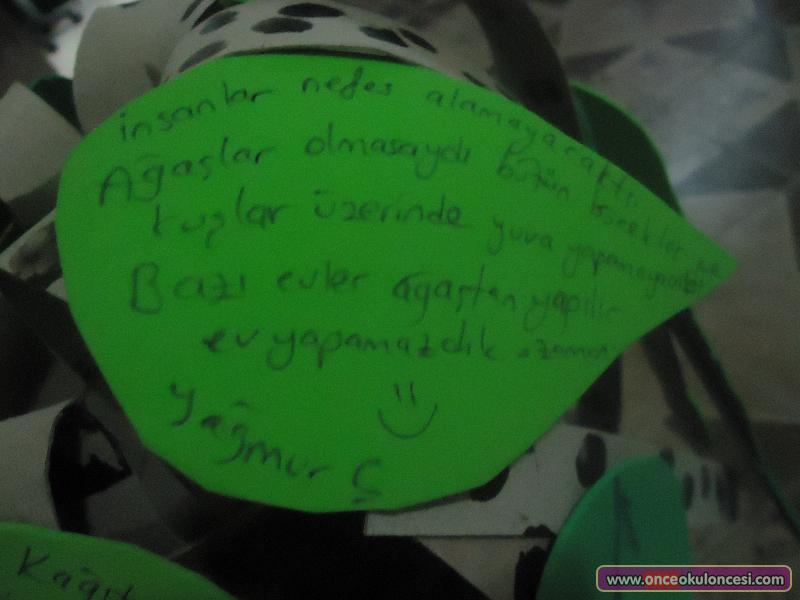 insanlar nefes alamayacaktı
Ağaşlar olmasaydı bütün böcekler ve
kuşlar üzerinde yuva yapamayacaktı
Bazı evler ağaştan yapılır
ev yapamazdık o zaman
Yağmur Ç
Kağıt
www.onceokuloncesi.com